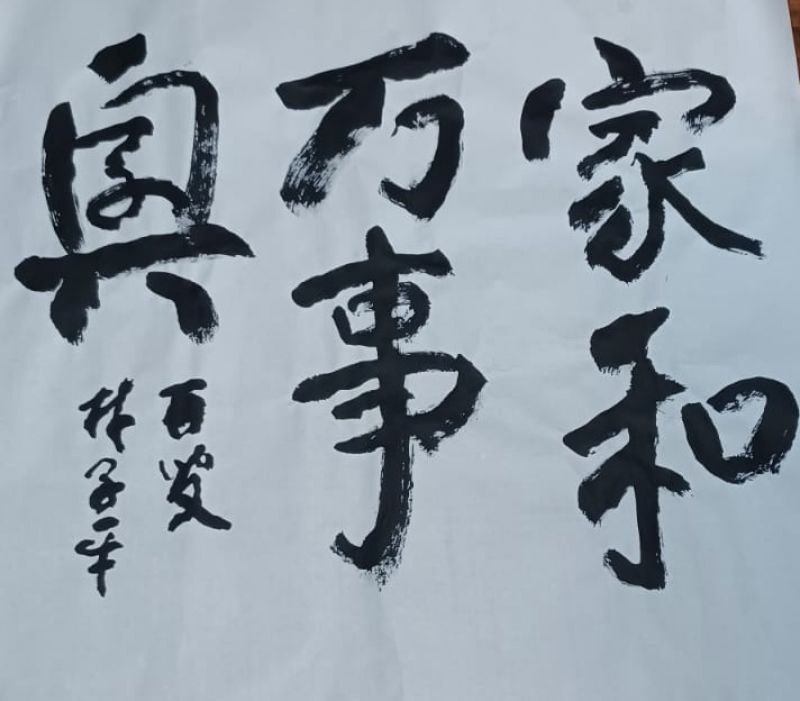 家和
万事
興
石叟
林子平